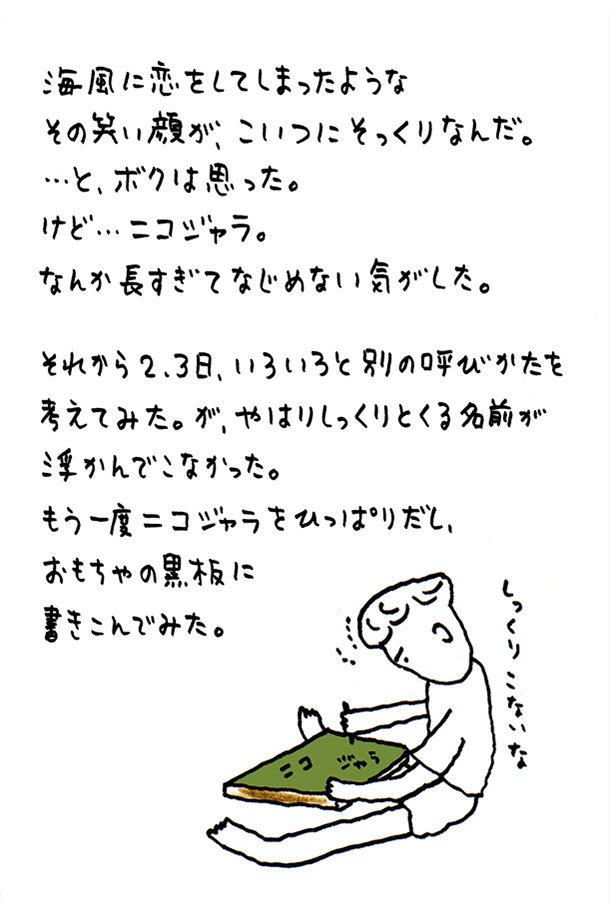 海風に恋をしてしまったような
その笑い顔が、こいつにそっくりなんだ。
…と、ボクは思った。
けど…ニコジャラ。
なんか長すぎてなじめない気がした。
それから2、3日、いろいろと別の呼びかたを
考えてみた。が、やはりしっくりとくる名前が
浮かんでこなかった。
もう一度ニコジャラをひっぱりだし、
おもちゃの黒板に
書きこんでみた。
しっくりこないな
ニコ ジャラ